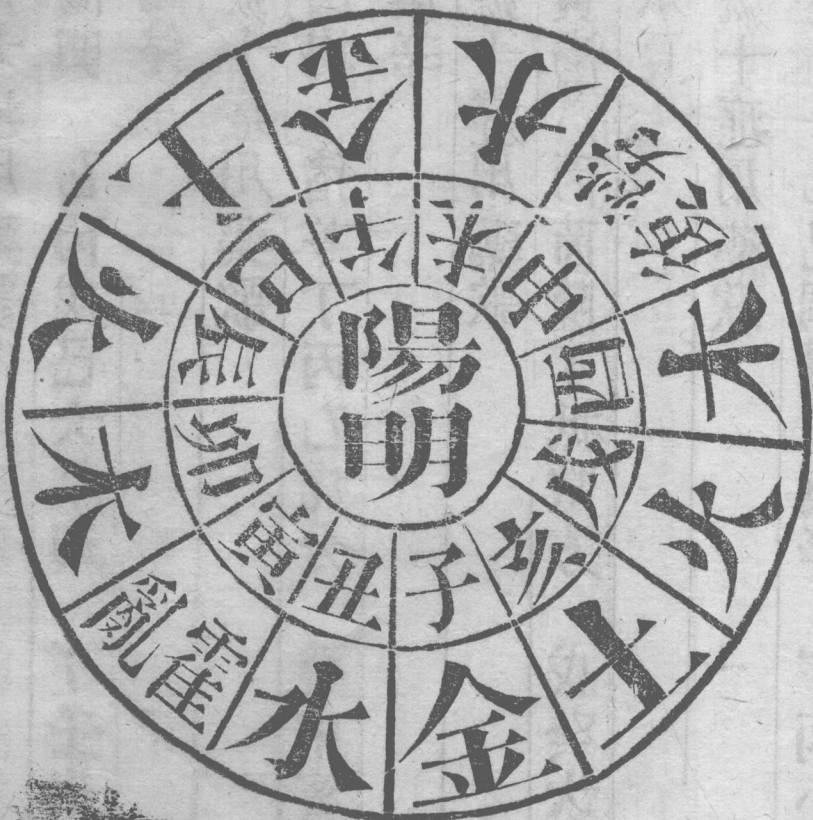 陽明
子
丑
寅
卯
辰
巳
午
未
申
酉
戌
亥
金
水
霍亂
木
火
土
金
水
勞復
木
火
土